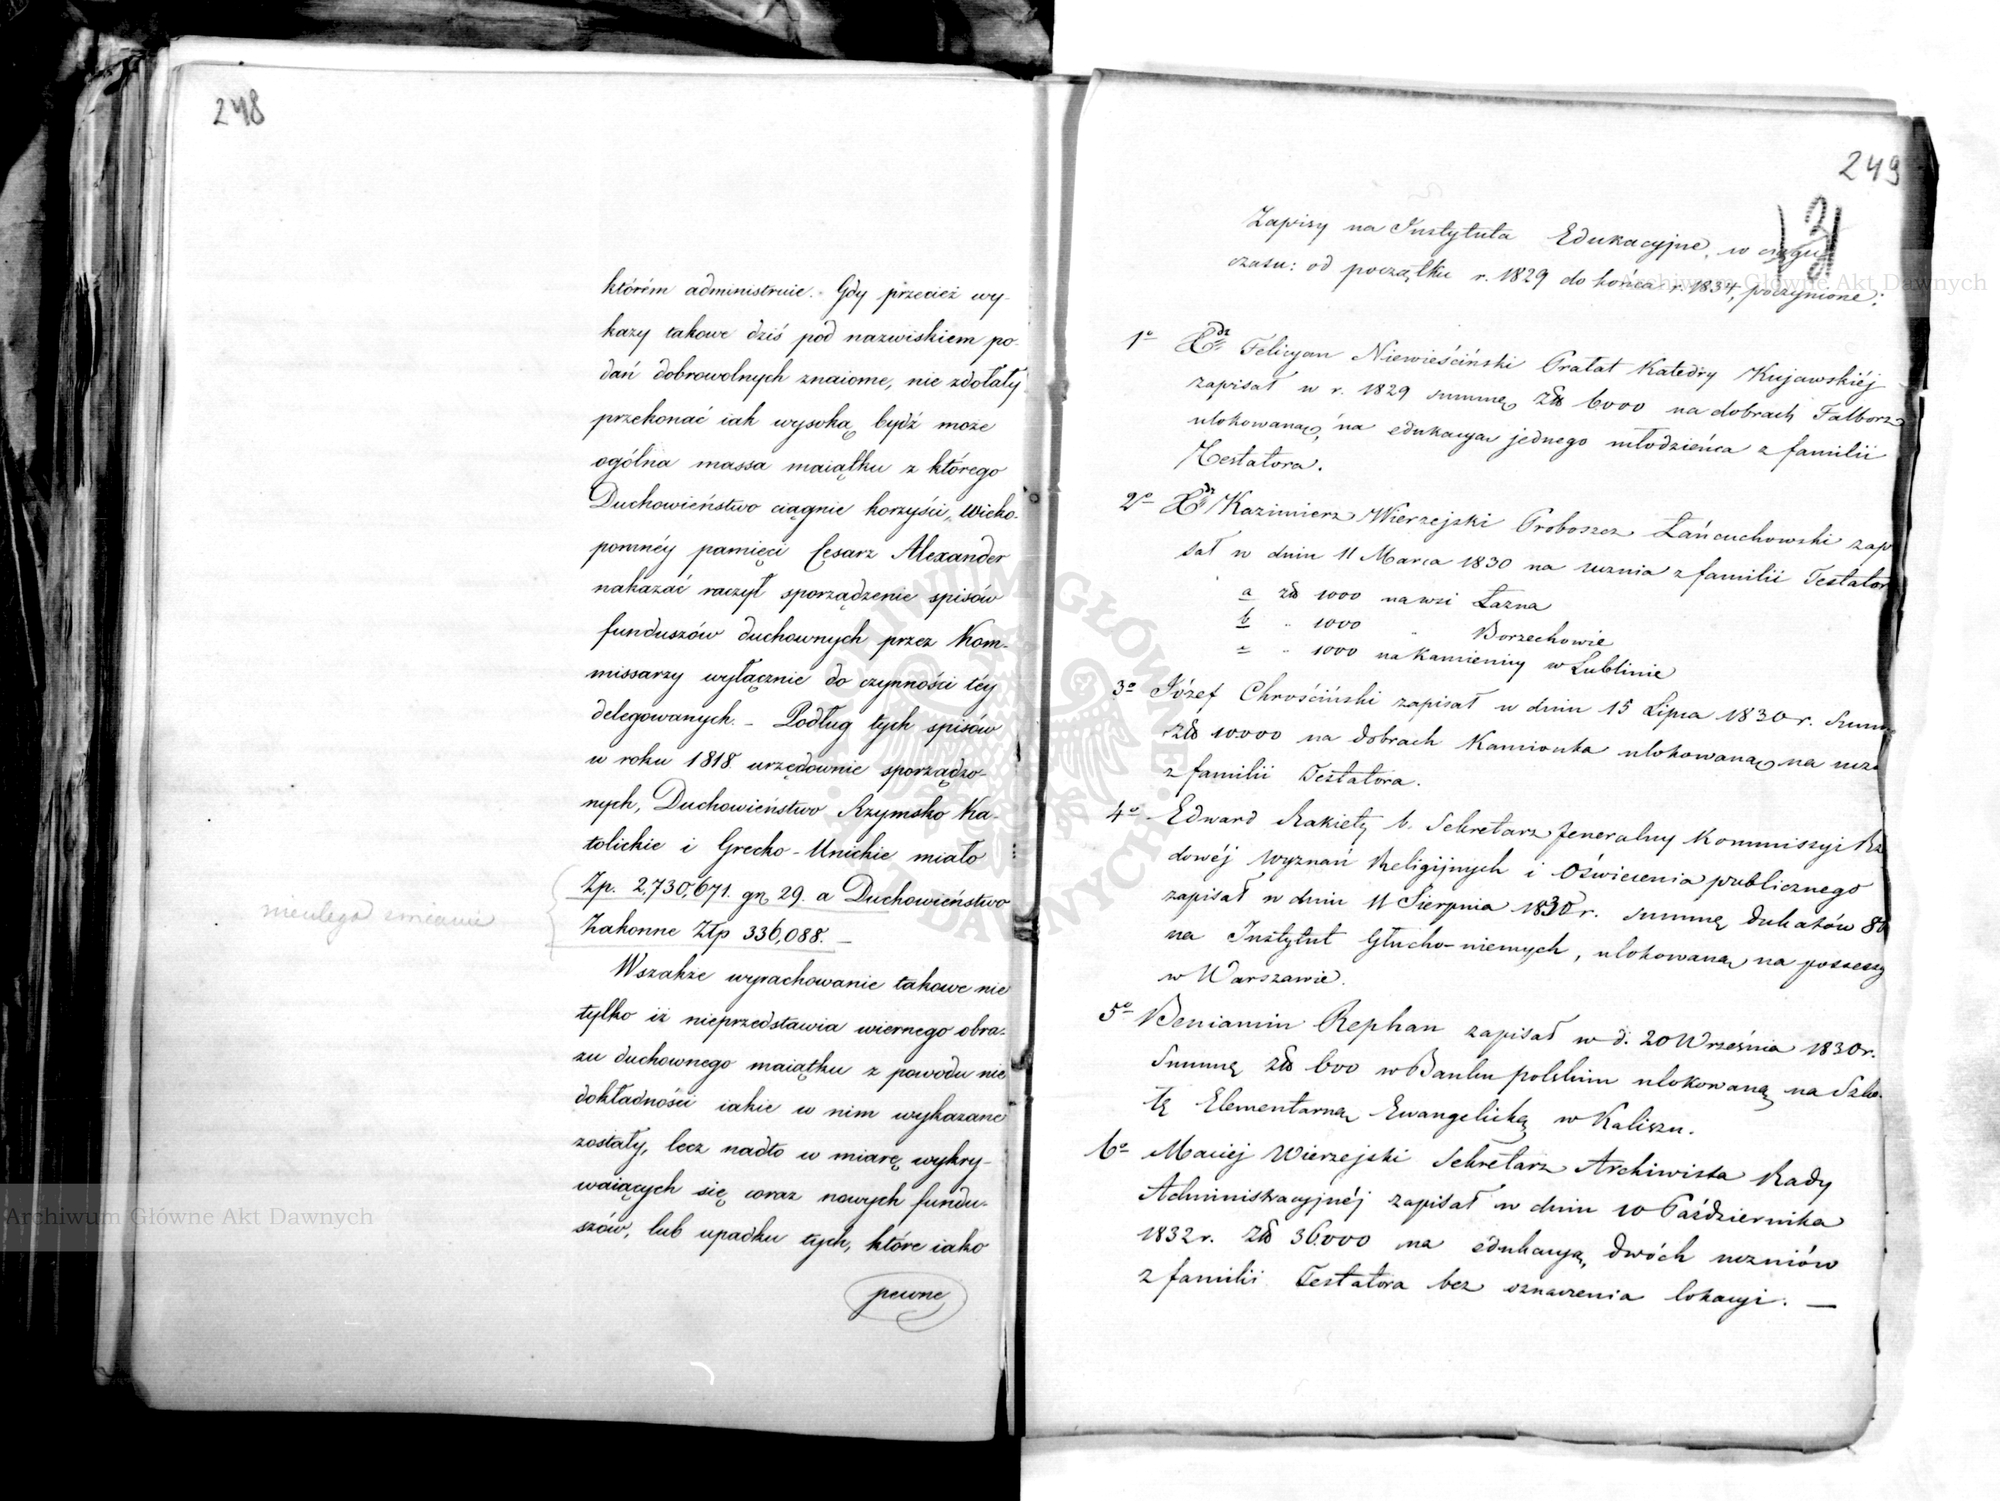 248
którém administruie. Gdy przecież wy-
kazy takowe dziś pod nazwiskiem po-
dań dobrowolnych znaiome, nie zdołały
przekonać iak wysoką bydź może
ogólna massa maiątku z którego
Duchowieństwo ciągnie korzyści, Wieko-
pomnéy pamięci Cesarz Alexander
nakazać raczył sporządzenie spisów
funduszów duchownych przez Kom-
missarzy wyłącznie do czynności téy
delegowanych. - Podług tych spisów
w roku 1818. urzędownie sporządzo-
nych, Duchowieństwo Rzymsko Ka-
tolickie i Grecko-Unickie miało
Zp. 2,730,671. gr. 29. a Duchowieństwo
Zakonne Złp 336,088. -
nieulega zmianie
Wszakże wyrachowanie takowe nie
tylko iż nieprzedstawia wiernego obra-
zu duchownego maiątku z powodu nie
dokładności iakie w nim wykazane
zostały, lecz nadto w miarę wykry-
waiących się coraz nowych fundu-
szów, lub upadku tych, które iako
pewne
249
Zapisy na Instytuta Edukacyjne, w ciągu
czasu: od początku r. 1829 do końca r. 1834, poczynione:
1o Xdz Felicyan Niewieściński Prałat Katedry Kujawskiéj
zapisał w r. 1829 summę złł 6000 na dobrach Falborz
ulokowaną, na edukacyą jednego młodzieńca z familii
Testatora.
2o Xdz Kazimierz Wierzejski Proboszcz Łańcuchowski zap
sał w dniu 11 Marca 1830 na ucznia z familii Testator
a złł 1000 na wsi Łazna
b " 1000 " Borzechowie
c " 1000 na Kamienicy w Lublinie
3o Józef Chrościński zapisał w dniu 15 Lipca 1830 r. Summ
złł 10000 na dobrach Kamionka ulokowaną na ucz
z familii Testatora.
4o Edward Rakiety b. Sekretarz Jeneralny Kommissyi Rz
dowéj Wyznań Religijnych i Oświecenia publicznego
zapisał w dniu 11 Sierpnia 1830 r. summę dukatów 80
na Instytut Głucho-niemych, ulokowaną na possessy
w Warszawie.
5o Beniamin Rephan zapisał w d. 20 Września 1830 r.
Summę złł 600 w Banku polskim ulokowaną na Szko-
łę Elementarną Ewangelicką w Kaliszu.
6o Maciej Wierzejski Sekretarz Archiwista Rady
Administracyjnéj zapisał w dniu 10 Października
1832 r. złł 36000 na edukacyą dwóch uczniów
z familii Testatora bez oznaczenia lokacyi. -
Archiwum Główne Akt Dawnych
Archiwum Główne Akt Dawnych
ARCHIWUM GŁÓWNE AKT DAWNYCH